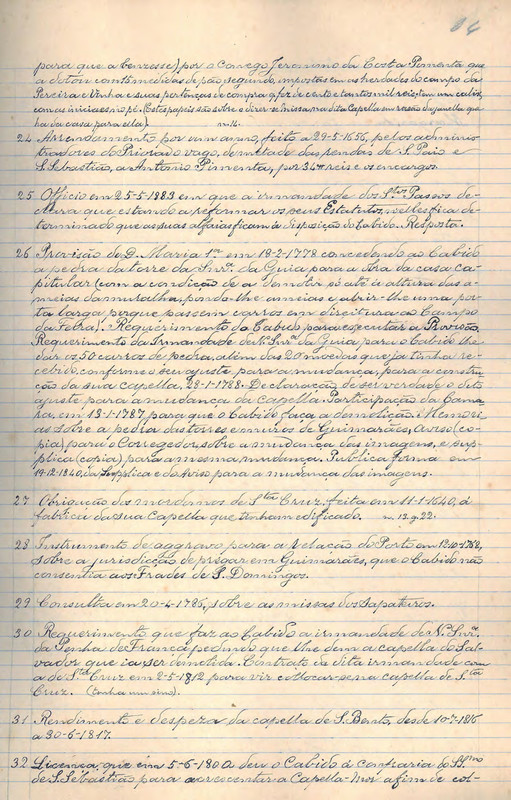 para que a benzesse) por o Conego Jeronimo da Costa Pimenta que
a dotou com 15 medidas de pão, segundo, impostas em as herdades do campo da
Pereira e Vinha e suas pertenças de compra q fez de cento e tantos mil reis; tem um calix
com as iniciaes no pé. (Estes papeis são sobre o dizer-se missa na dita Capella em razão da janella que
ha da cava para ella). n. 14.
24 Arrendamento por um anno, feito a 29-5-1656, pelos adminis-
tradores do Priorado vago, de metade das rendas de S. Paio e
S. Sebastião, a Antonio Pimenta, por 34 reis e os encargos.
25 Officio em 25-5-1883 em que a irmandade dos Stos Passos de-
clara que estando a reformar os seus Estatutos, n'elles fica de-
terminado que as suas alfaias ficam á disposição do Cabido. Resposta.
26 Provisão de D. Maria 1ª em 18-2-1778 concedendo ao Cabido
a pedra da torre da Snrª da Guia para a obra da casa ca-
pitular (com a condição de a demolir só até á altura das a-
meias da muralha, pondo-lhe ameias e abrir-lhe uma por-
ta larga porque passem carros em direitura ao Campo
da Feira). Requerimento do Cabido para executar a Provisão.
Requerimento da Irmandade de N. Snrª da Guia para o Cabido lhe
dar os 50 carros de pedra, além das 20 moedas que já tinha re-
cebido, conforme o seu ajuste, para a mudança, para a constru-
ção da sua capella, 28-1-1788. Declaração de ser verdade o dito
ajuste para a mudança da capella. Participação da Cama-
ra, em 13-1-1787, para que o Cabido faça a demolição. Memori-
as sobre a pedra das torres e muros de Guimarães, Aviso (co-
pia) para o Corregedor, sobre a mudança das imagens, e sup-
plica (copia) para a mesma mudança. Publica forma em
19-12-1840, da Supplica e do Aviso para a mudança das imagens.
27 Obrigação dos mordomos de Sta Cruz, feita em 11-1-1640, á
fabrica da sua capella que tinham edificado. n. 13. g. 22.
28 Instrumento de aggravo para a Relação do Porto em 12-10-1768,
sobre a jurisdicção de prégar em Guimarães, que o Cabido não
consentia aos Frades de S. Domingos.
29 Consulta em 20-4-1786, sobre as missas dos Sapateiros.
30 Requerimento que faz ao Cabido a irmandade de N. Snrª
da Penha de França pedindo que lhe dem a capella do Sal-
vador que ia ser demolida. Contrato da dita irmandade com
a de Sta Cruz em 2-5-1812 para vir collocar-se na capella de Sta
Cruz. (tinha um sino).
31 Rendimento e despeza da capella de S. Bento, desde 10-7-1816
a 30-6-1817.
32 Licença, que em 5-6-1800 deu o Cabido á confraria do SSmo
de S. Sebastião para accrescentar a Capella-Mor a fim de col-